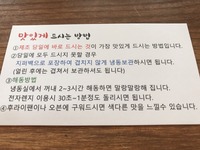 맛있게 드시는 방법
①제조 당일에 바로 드시는 것이 가장 맛있게 드시는 방법입니다.
②당일에 모두 드시지 못할 경우
지퍼백으로 포장하여 겹치지 않게 냉동보관하시면 됩니다.
(말린 후에는 겹쳐서 보관하셔도 됩니다)
③해동방법
냉동실에서 꺼내 2~3시간 해동하면 말랑말랑해 집니다.
전자렌지 이용시 30초~1분정도 돌리시면 됩니다.
④후라이팬이나 오븐에 구워드시면 색다른 맛을 느낄수 있습니다.